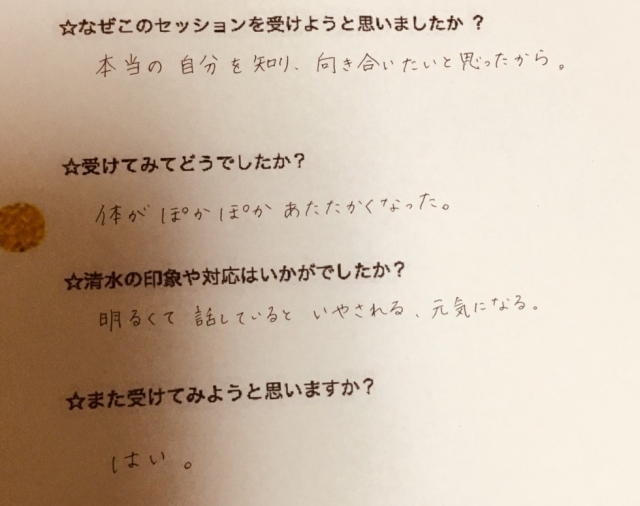 ☆なぜこのセッションを受けようと思いましたか？
本当の自分を知り、向き合いたいと思ったから。
☆受けてみてどうでしたか？
体がぽかぽかあたたかくなった。
☆清水の印象や対応はいかがでしたか？
明るくて話しているといやされる、元気になる。
☆また受けてみようと思いますか？
はい。